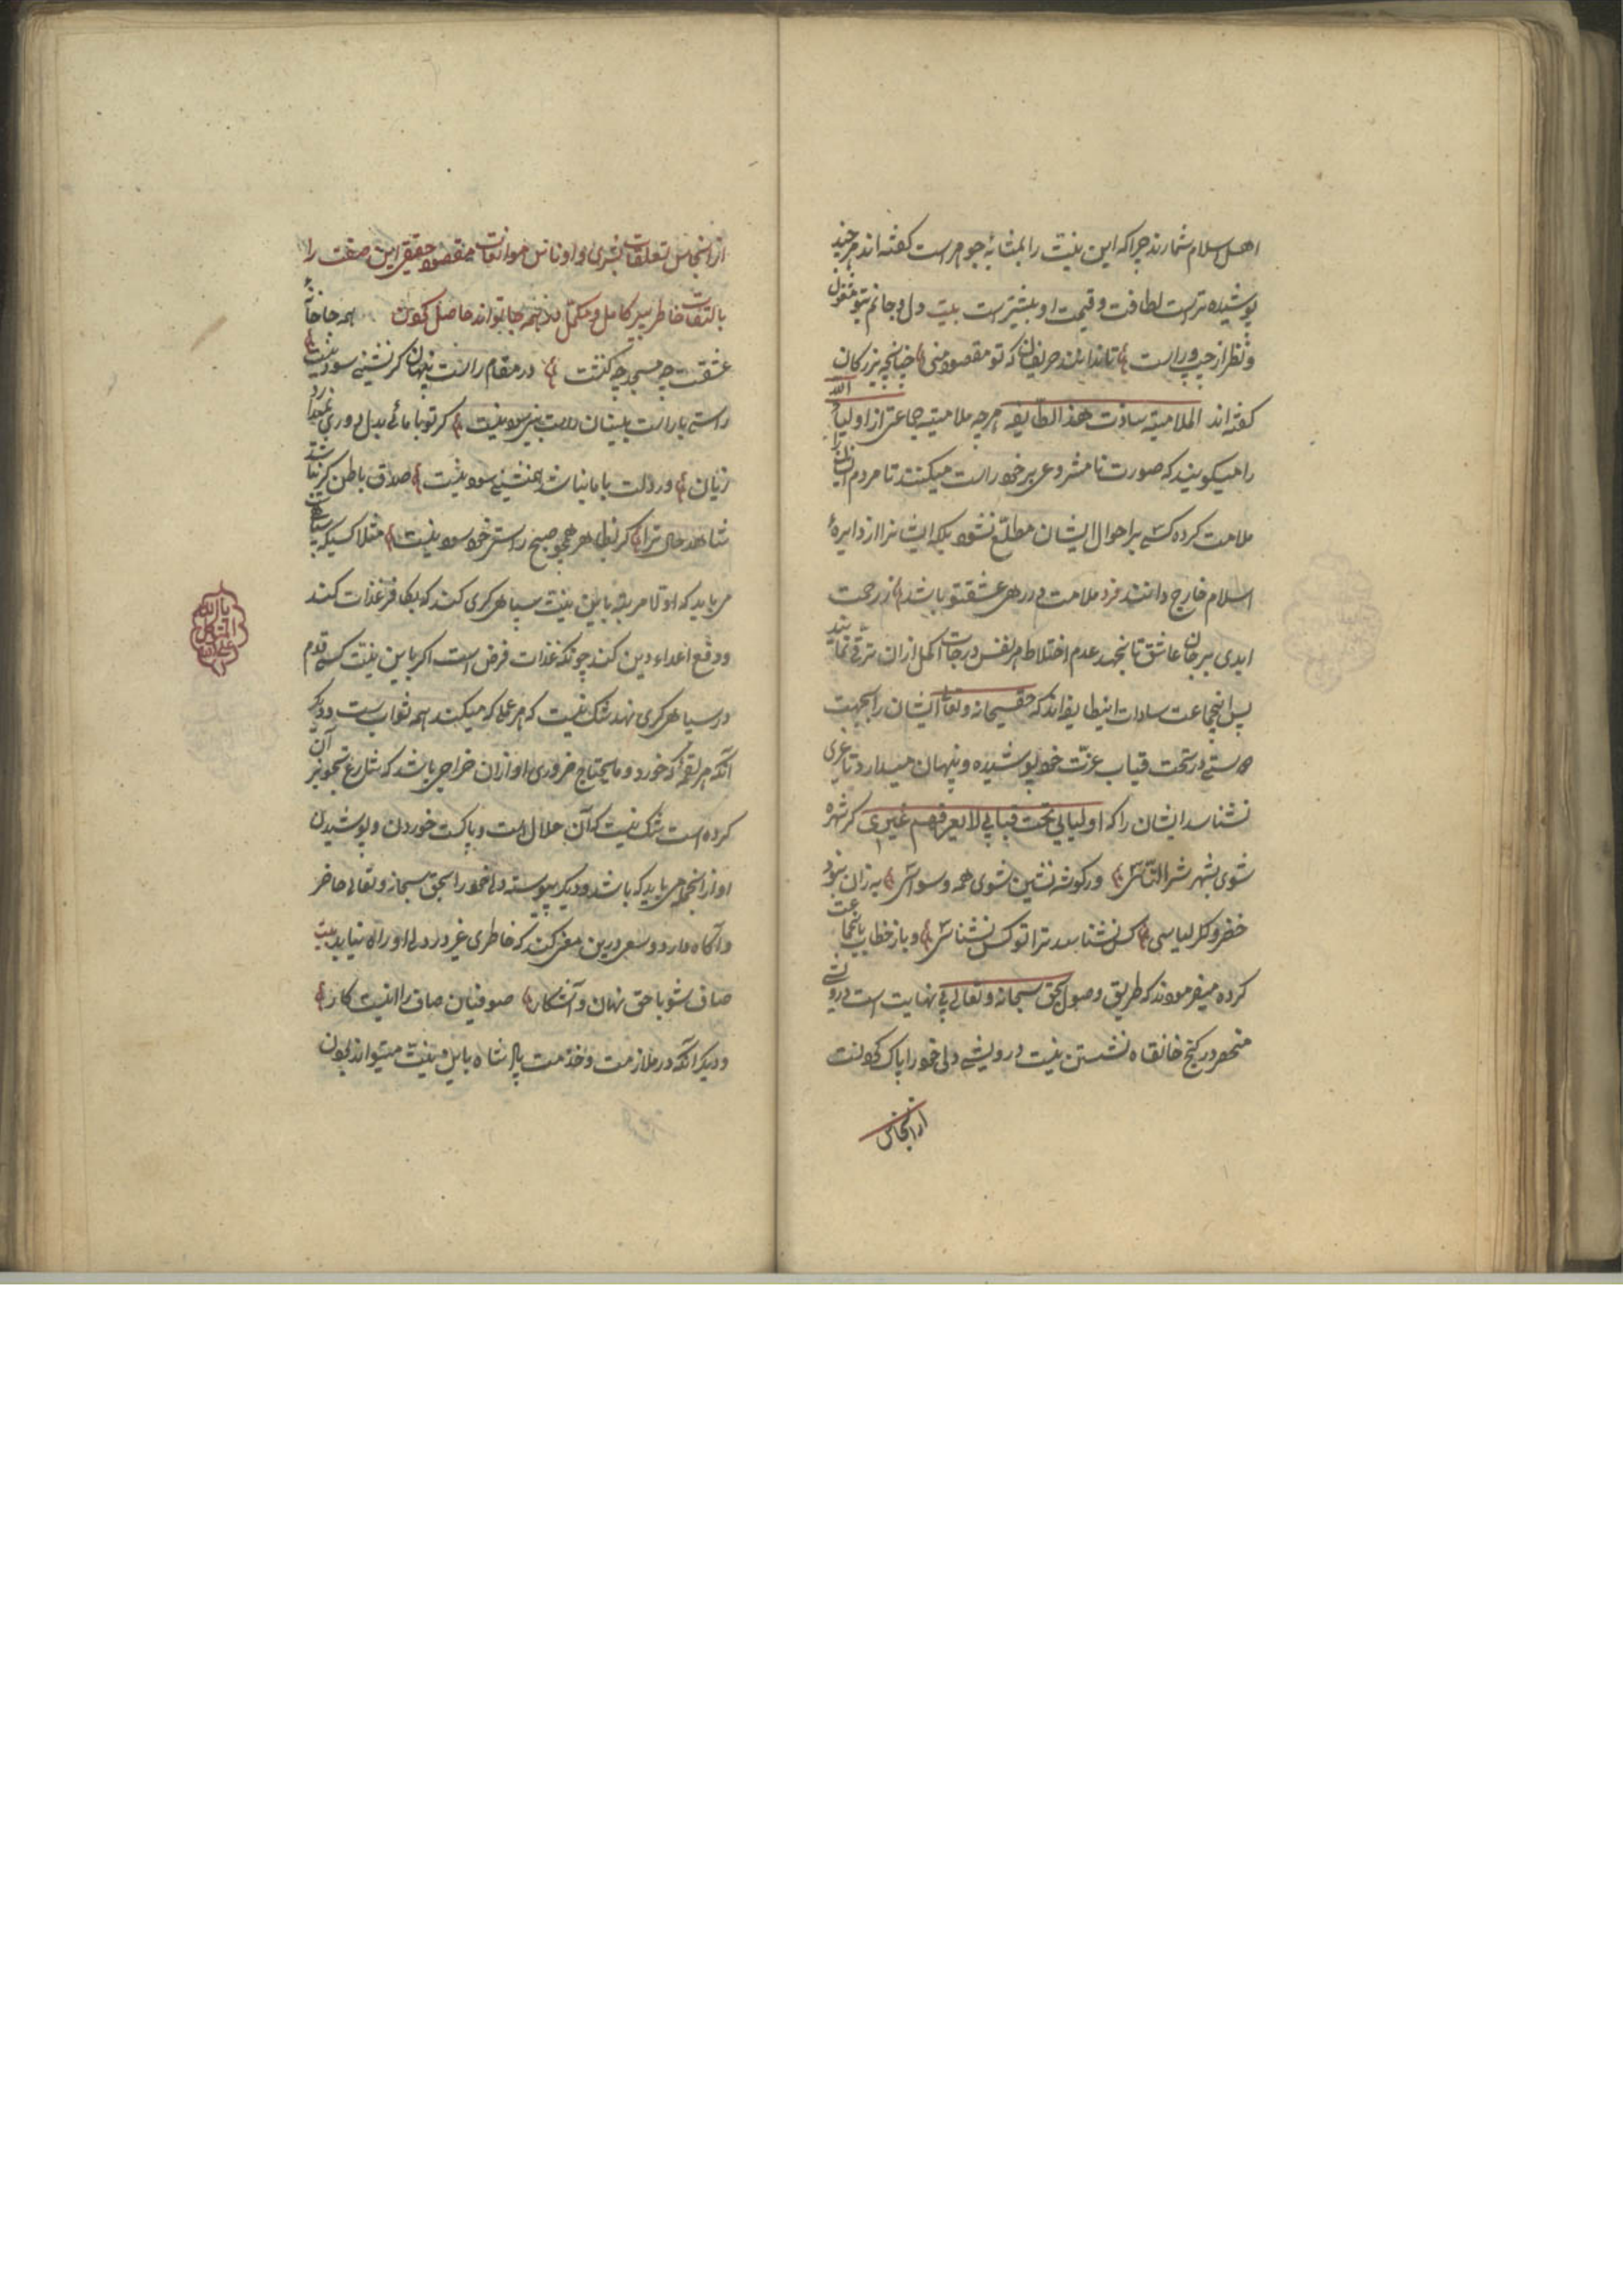 اهل اسلام شمارند چرا که این نیت را بمثابهٔ جوهرست کفته اند هرچند
پوشیده ترست لطافت و قیمت او بیشترست بیت دل و جانم بتو مشغول
و نظر از چپ و راست تا ندانند حریفان که تو مقصود منی چنانچه بزرکان
کفته اند الملامیته سادات هذ الطایفه هرچه ملامیته جماعتی از اولیاء الله
را میکویند که صورت نامشروعی بر خود راست میکنند تا مردم ایشان را
ملامت کرده کسی بر احوال ایشان مطلع نشود بلکه ایشانرا از دایرهٔ
اسلام خارج دانند فرد ملامت در ره عشقتو باشد از رحمت
ابدی بر جان عاشق تا بجهد عدم اختلاط هر نفس درجات اکمل ازان ترقی نمایند
پس اینجماعت سادات اینطایفه اند که حق سبحانه وتعالی ایشان را بجهت
دوستی در تحت قباب عزت خود پوشیده و پنهان میدارد تا غیری
نشناسد ایشان را که اولیایی تحت قبابی لا یعرفهم غیری کر شهره
شوی بشهر شر الناسی ور کوشه نشین شوی همه وسواسی به زان نبود
خضر و کر الیاسی کس نشناسد ترا تو کس نشناسی و باز خطاب باینجماعت
کرده میفرمودند که طریق وصول بحق سبحانه وتعالی بی نهایت است درویشی
منحصر در کنج خانقاه نشستن نیست درویشی دلی خود را پاک کردنست
از انجاس
از انجاس تعلقات بشری و اوناس موانعات مقصود حقیقی این صفت را
بالتفات خاطر پیر کامل و مکمل در همه جا تواند حاصل کردن همه جا خانهٔ
عشقت چه مسجد چه کنشت در مقام راست پنهان کر نشینی سود نیست
کر تو با مائی بدل دوری بخود
زیان ور دلت با ما نباشد همنشینی سود نیست صادق باطن کر نباشد
شاهد حال ترا کر بظاهر همچو صبح راستی خود سود نیست مثلا کسیکه سپاهیست
می باید که اولا مرتبه باین نیت سپاهی کری کند که بکافر غذات کند
و دفع اعداء دین کند چونکه غذات فرض است اکر باین نیت کسی قدم
در سپاهی کری نهد شک نیست که هر عملی که میکند همه ثواب ست و دیکر
آنکه هر لقمه که خورد و مایحتاج ضروری او ازان خراجی باشد که شارع تجویز آن
کرده است شک نیست که آن حلال است و پاکست خوردن و پوشیدن
او از انجا می باید که باشد و دیکر پیوسته دلی خود را بحق سبحانه وتعالی حاضر
و آکاه دارد و سعی درین معنی کند که خاطری غیر در دلی او راه نیابد بیت
صاف شو با حق نهان و آشکار صوفیان صاف را اینست کار
و دیکر آنکه در ملازمت و خدمت پادشاه باین نیت میتواند بودن
یا الله
المتوکل
علی الله